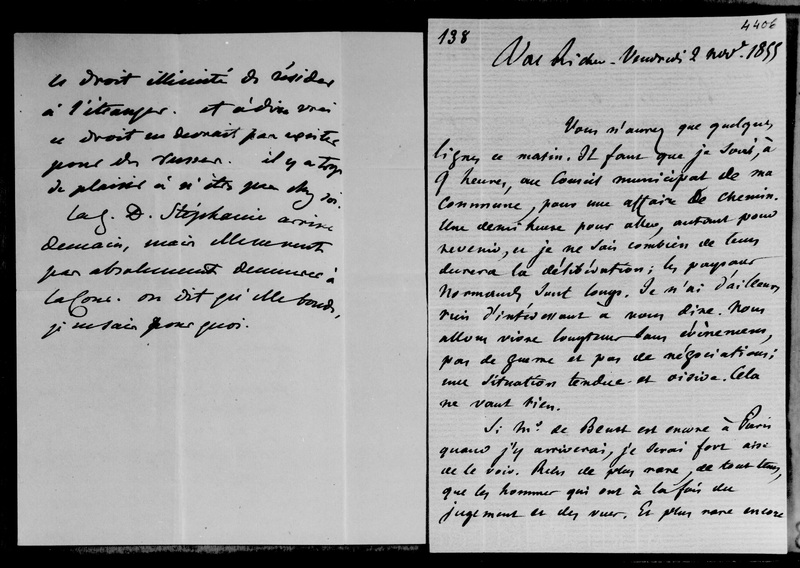 le droit illimité de résider
à l'étranger. et à dire vrai
ce droit ne devrait pas exister
pour des russes. il y a trop
de plaisir à n'être pas chez soi.
La g. D. Stéphanie arrive
demain, mais elle ne veut
pas absolument demeurer à
la Cour. on dit qu'elle boude,
je ne sais pourquoi.
138
4406
Val Richer - Vendredi 2 Nov.re 1855
Vous n'aurez que quelques
lignes ce matin. Il faut que je sois, à
9 heures, au Conseil municipal de ma
commune, pour une affaire de chemin.
Une demi heure pour aller, autant pour
revenir, et je ne sais combien de tems
durera la délibération; les paysans
Normands sont longs. Je n'ai d'ailleurs
rien d'intéressant à vous dire. Nous
allons vivre longtems sans évènemens,
pas de guerre et pas de négociations;
une situation tendue et oisive. Cela
ne vaut rien.
Si Mr. de Beust est encore à Paris
quand j'y arriverai, je serai fort aise
de le voir. Rien de plus rare, de tout tems,
que les hommes qui ont à la fois du
jugement et des vues. Et plus rare encore